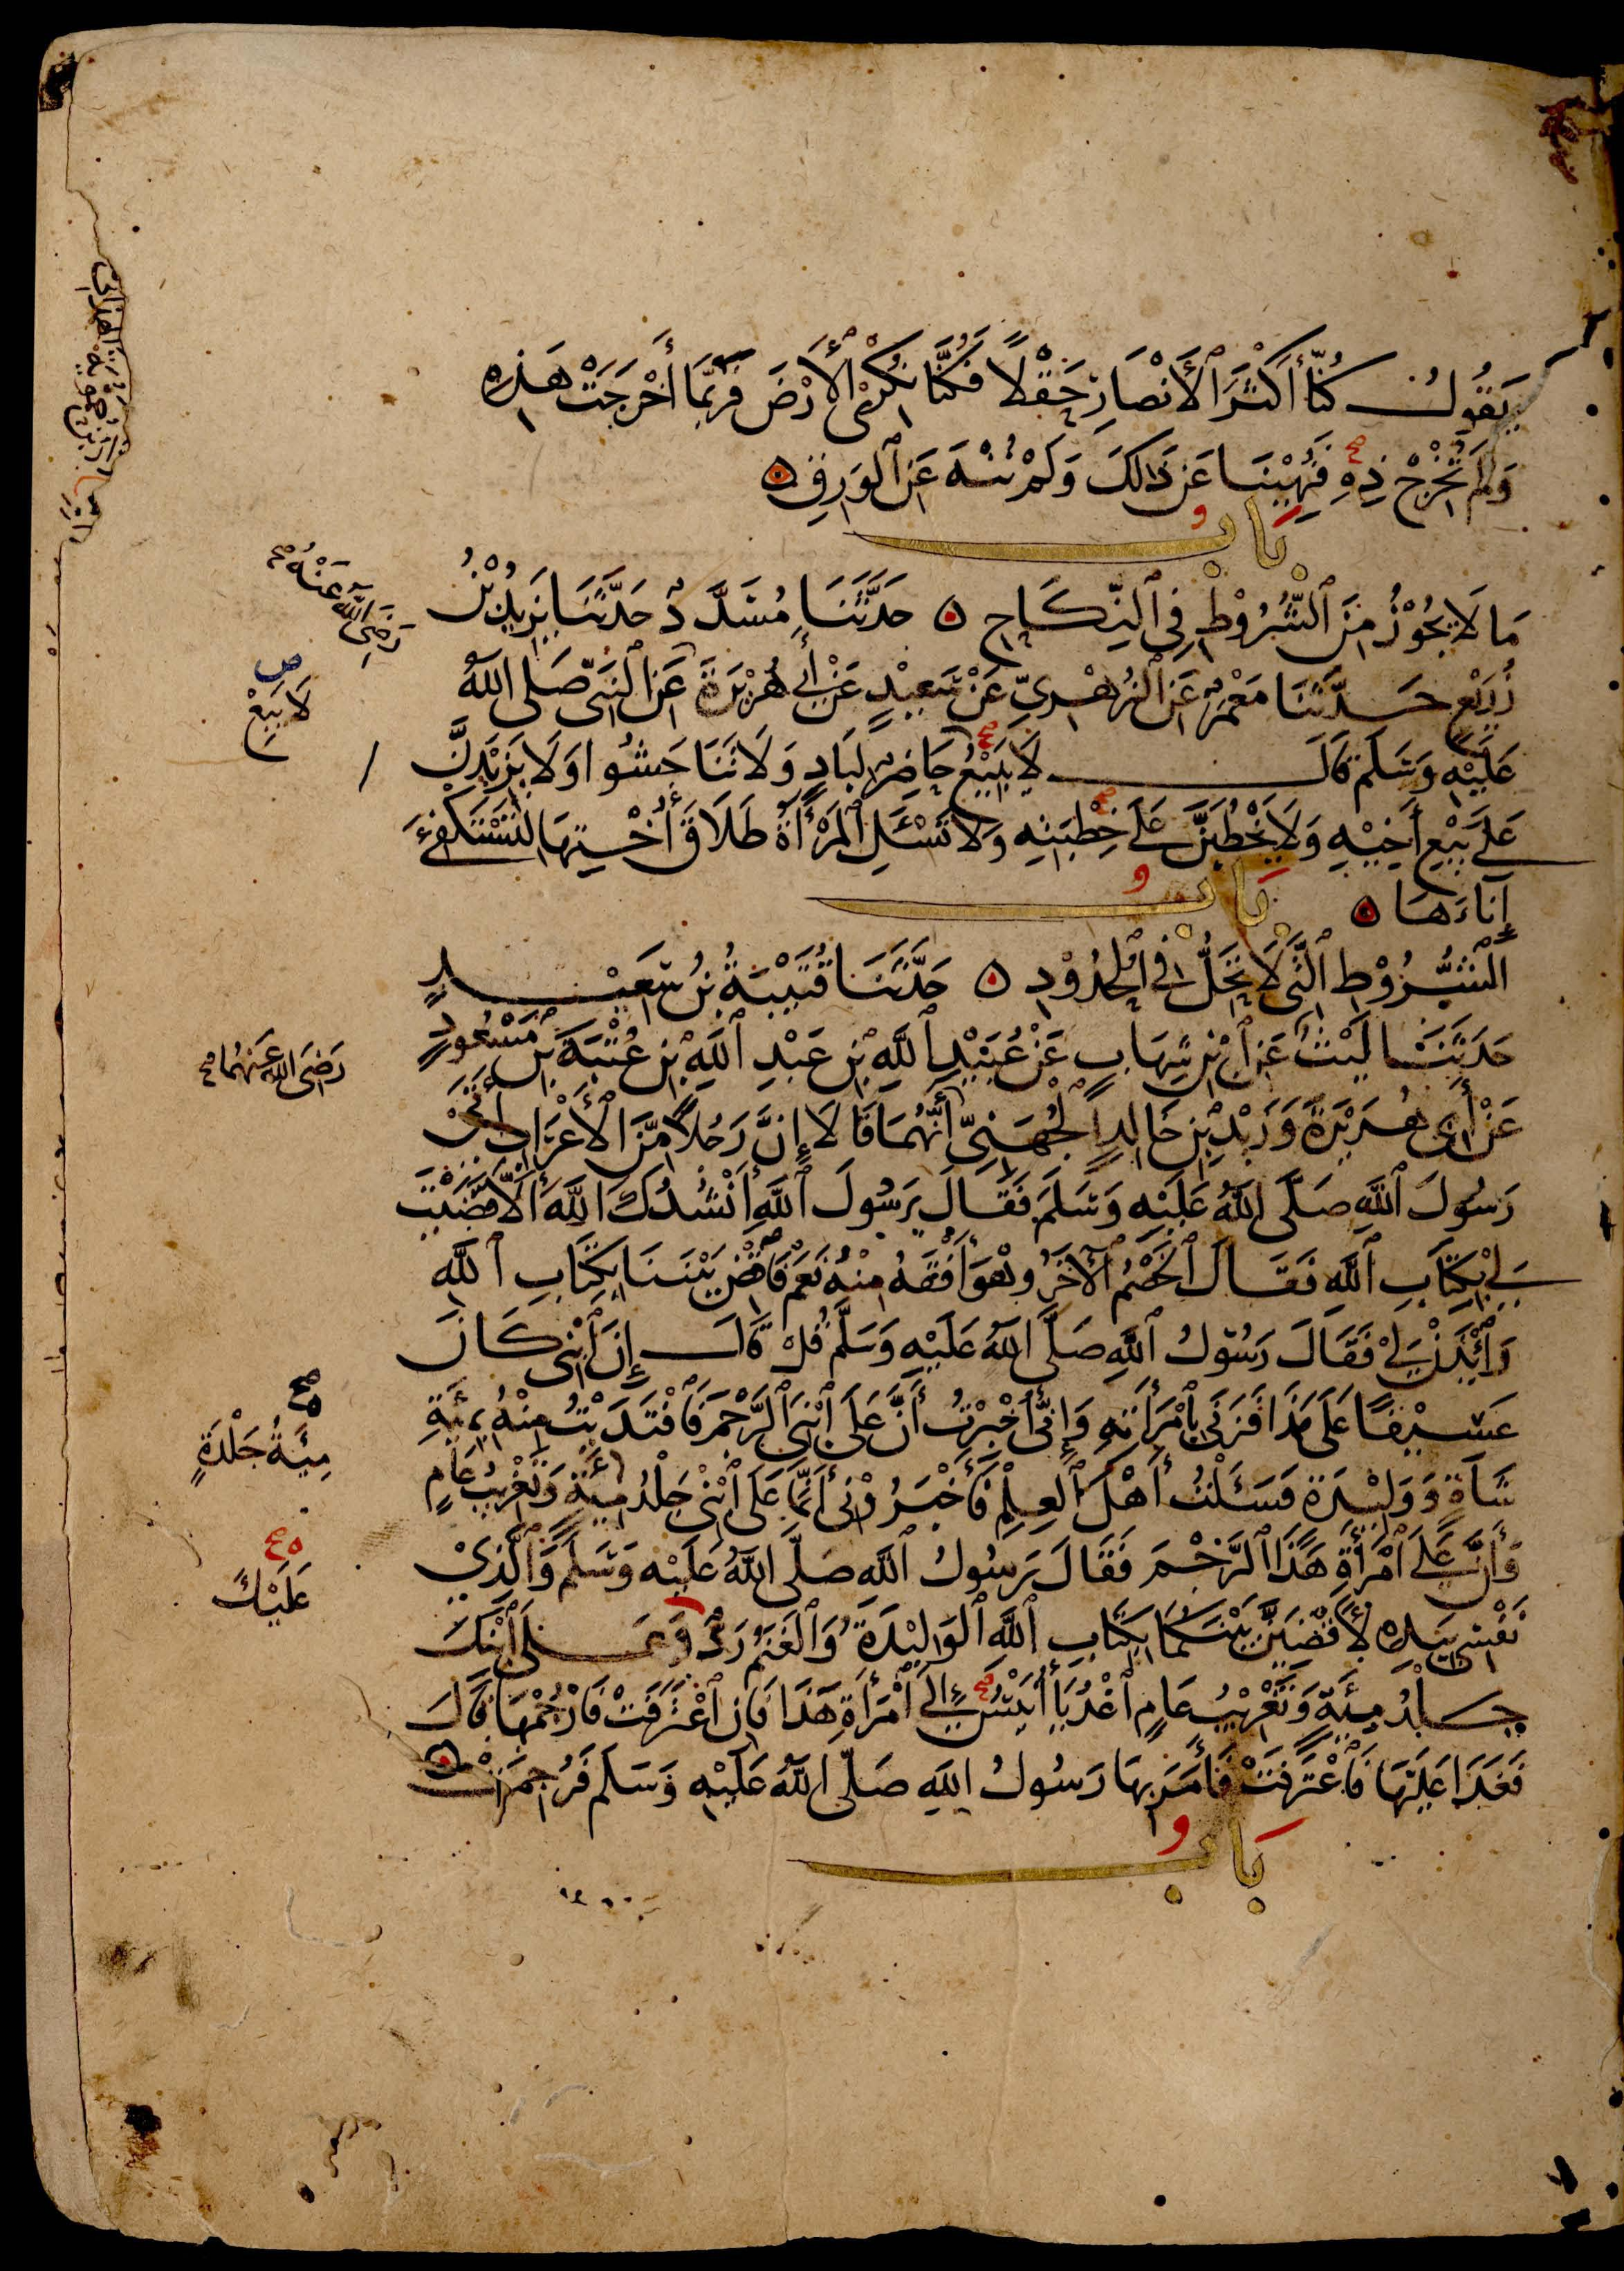 يَقُولُ كُنَّا أَكْثَرَ ٱلْأَنْصَارِ حَقْلًا فَكُنَّا نُكْرِي ٱلْأَرْضَ فَرُبَّمَا أَخْرَجَتْ هَذِهِ
وَلَمْ تُخْرِجْ ذِهِ فَنُهِيْنَا عَنْ ذَٰلِكَ وَلَمْ نُنْهَ عَنِ ٱلْوَرِقِ
بَابُ
مَا لَا يَجُوْزُ مِنَ ٱلشُّرُوْطِ فِي ٱلنِّكَاحِ حَدَّثَنَا مُسَدَّدٌ حَدَّثَنَا يَزِيدُ بْنُ
زُرَيْعٍ حَدَّثَنَا مَعْمَرٌ عَنِ ٱلزُّهْرِيِّ عَنْ سَعِيْدٍ عَنْ أَبِي هُرَيْرَةَ عَنِ ٱلنَّبِيِّ صَلَّى اللَّهُ
عَلَيْهِ وَسَلَّمَ قَالَ لَا يَبِيْعُ حَاضِرٌ لِبَادٍ وَلَا تَنَاجَشُوا وَلَا يَزِيْدَنَّ
عَلَى بَيْعِ أَخِيْهِ وَلَا يَخْطُبَنَّ عَلَى خِطْبَتِهِ وَلَا تَسْئَلِ ٱلْمَرْأَةُ طَلَاقَ أُخْتِهَا لِتَسْتَكْفِئَ
إِنَاءَهَا
بَابُ
ٱلشُّرُوْطِ ٱلَّتِي لَا تَحِلُّ فِي ٱلْحُدُوْدِ حَدَّثَنَا قُتَيْبَةُ بْنُ سَعِيْدٍ
حَدَّثَنَا لَيْثٌ عَنِ ٱبْنِ شِهَابٍ عَنْ عُبَيْدِ ٱللَّهِ بْنِ عَبْدِ ٱللَّهِ بْنِ عُتْبَةَ بْنِ مَسْعُودٍ
عَنْ أَبِي هُرَيْرَةَ وَزَيْدِ بْنِ خَالِدٍ ٱلْجُهَنِيِّ أَنَّهُمَا قَالَا إِنَّ رَجُلًا مِّنَ ٱلْأَعْرَابِ أَتَى
رَسُولَ ٱللَّهِ صَلَّى اللَّهُ عَلَيْهِ وَسَلَّمَ فَقَالَ يَرَسُولَ ٱللَّهِ أَنْشُدُكَ اللَّهَ أَلَّا قَضَيْتَ
لِي بِكِتَابِ ٱللَّهِ فَقَالَ ٱلْخَصْمُ ٱلْآخَرُ وَهْوَ أَفْقَهُ مِنْهُ نَعَمْ فَٱقْضِ بَيْنَنَا بِكِتَابِ ٱللَّهِ
وَٱئْذَنْ لِيْ فَقَالَ رَسُوْلُ ٱللَّهِ صَلَّى اللَّهُ عَلَيْهِ وَسَلَّمَ قُلْ قَالَ إِنَّ ٱبْنِي كَانَ
عَسِيْفًا عَلَى هَذَا فَزَنَى بِٱمْرَأَتِهِ وَإِنِّي أُخْبِرْتُ أَنَّ عَلَى ٱبْنِيَ ٱلرَّجْمَ فَٱفْتَدَيْتُ مِنْهُ بِمِئَةِ
شَاةٍ وَوَلِيْدَةٍ فَسَئَلْتُ أَهْلَ ٱلْعِلْمِ فَأَخْبَرُوْنِي أَنَّمَا عَلَى ٱبْنِيْ جَلْدُ مِئَةٍ وَتَغْرِيْبُ عَامٍ
وَأَنَّ عَلَى ٱمْرَأَةِ هَذَا ٱلرَّجْمَ فَقَالَ رَسُولُ ٱللَّهِ صَلَّى اللَّهُ عَلَيْهِ وَسَلَّمَ وَٱلَّذِيْ
نَفْسِي بِيَدِهِ لَأَقْضِيَنَّ بَيْنَكُمَا بِكِتَابِ ٱللَّهِ ٱلْوَلِيْدَةُ وَٱلْغَنَمُ رَدٌّ وَعَلَى ٱبْنِكَ
جَلْدُ مِئَةٍ وَتَغْرِيْبُ عَامٍ ٱغْدُ يَا أُنَيْسُ إِلَى ٱمْرَأَةِ هَذَا فَإِنِ ٱعْتَرَفَتْ فَٱرْجُمْهَا قَالَ
فَغَدَا عَلَيْهَا فَٱعْتَرَفَتْ فَأَمَرَ بِهَا رَسُولُ اللَّهِ صَلَّى اللَّهُ عَلَيْهِ وَسَلَّمَ فَرُجِمَتْ
بَابُ
رَضِيَ اللَّهُ عَنْهُ
لَا يَبِعْ
رَضِيَ اللَّهُ عَنْهُمَا
مِيَةُ جَلْدَةٍ
عَلَيْكَ